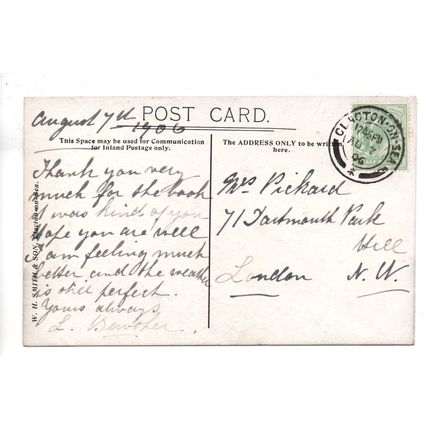 August 7th
1906
POST CARD.
This Space may be used for Communication
for Inland Postage only.
The ADDRESS ONLY to be written
here.
CLACTON-ON-SEA
AU 7
06
Thank you very
much for the book
it was kind of you
Hope you are well
I am feeling much
better and the weather
is still perfect.
Yours always
L.
Mrs Pickard
71 Dartmouth Park
Hill
London N. W.
W. H. SMITH & SON, Clacton-on-sea.